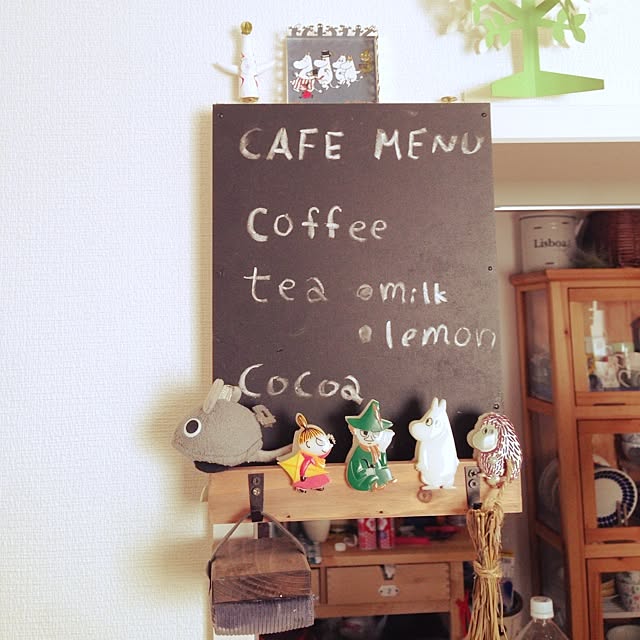 CAFE MENU
Coffee
tea •milk
•lemon
Cocoa
Lisboa